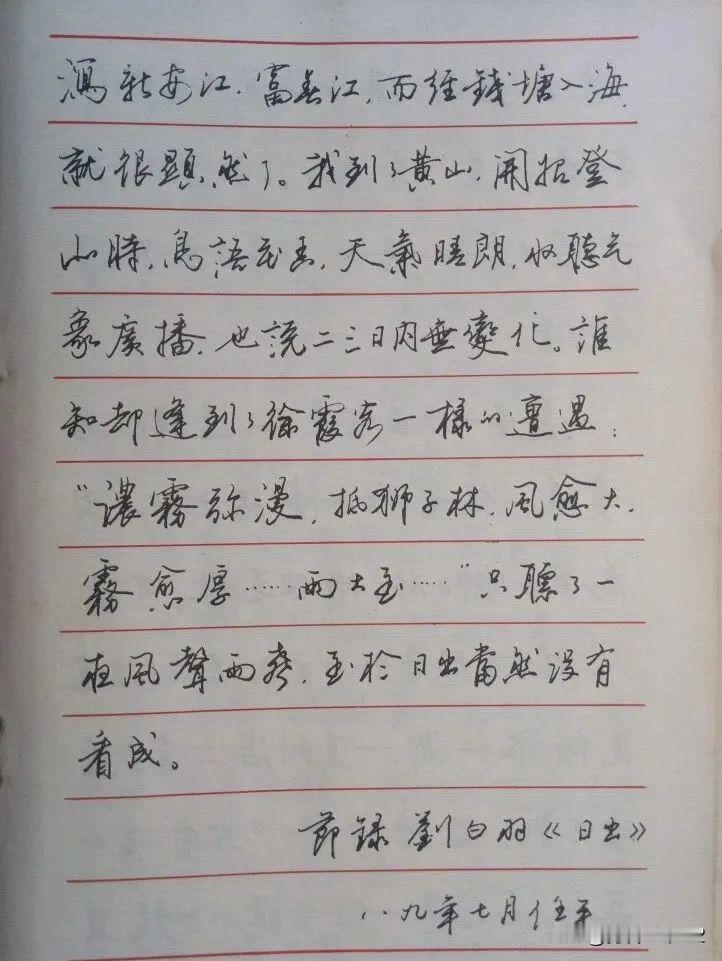 瀉新安江，富春江，而經錢塘入海，
就很顯然了。我到了黃山，開始登
山時，鳥語花香，天氣晴朗，收聽气
象廣播，也說二三日內無變化。誰
知却逢到了徐霞客一樣的遭遇：
“濃霧弥漫，抵狮子林，風愈大，
霧愈厚……雨大至……”只聽了一
夜風聲雨聲，至於日出當然没有
看成。
節録劉白羽《日出》
八九年七月任平